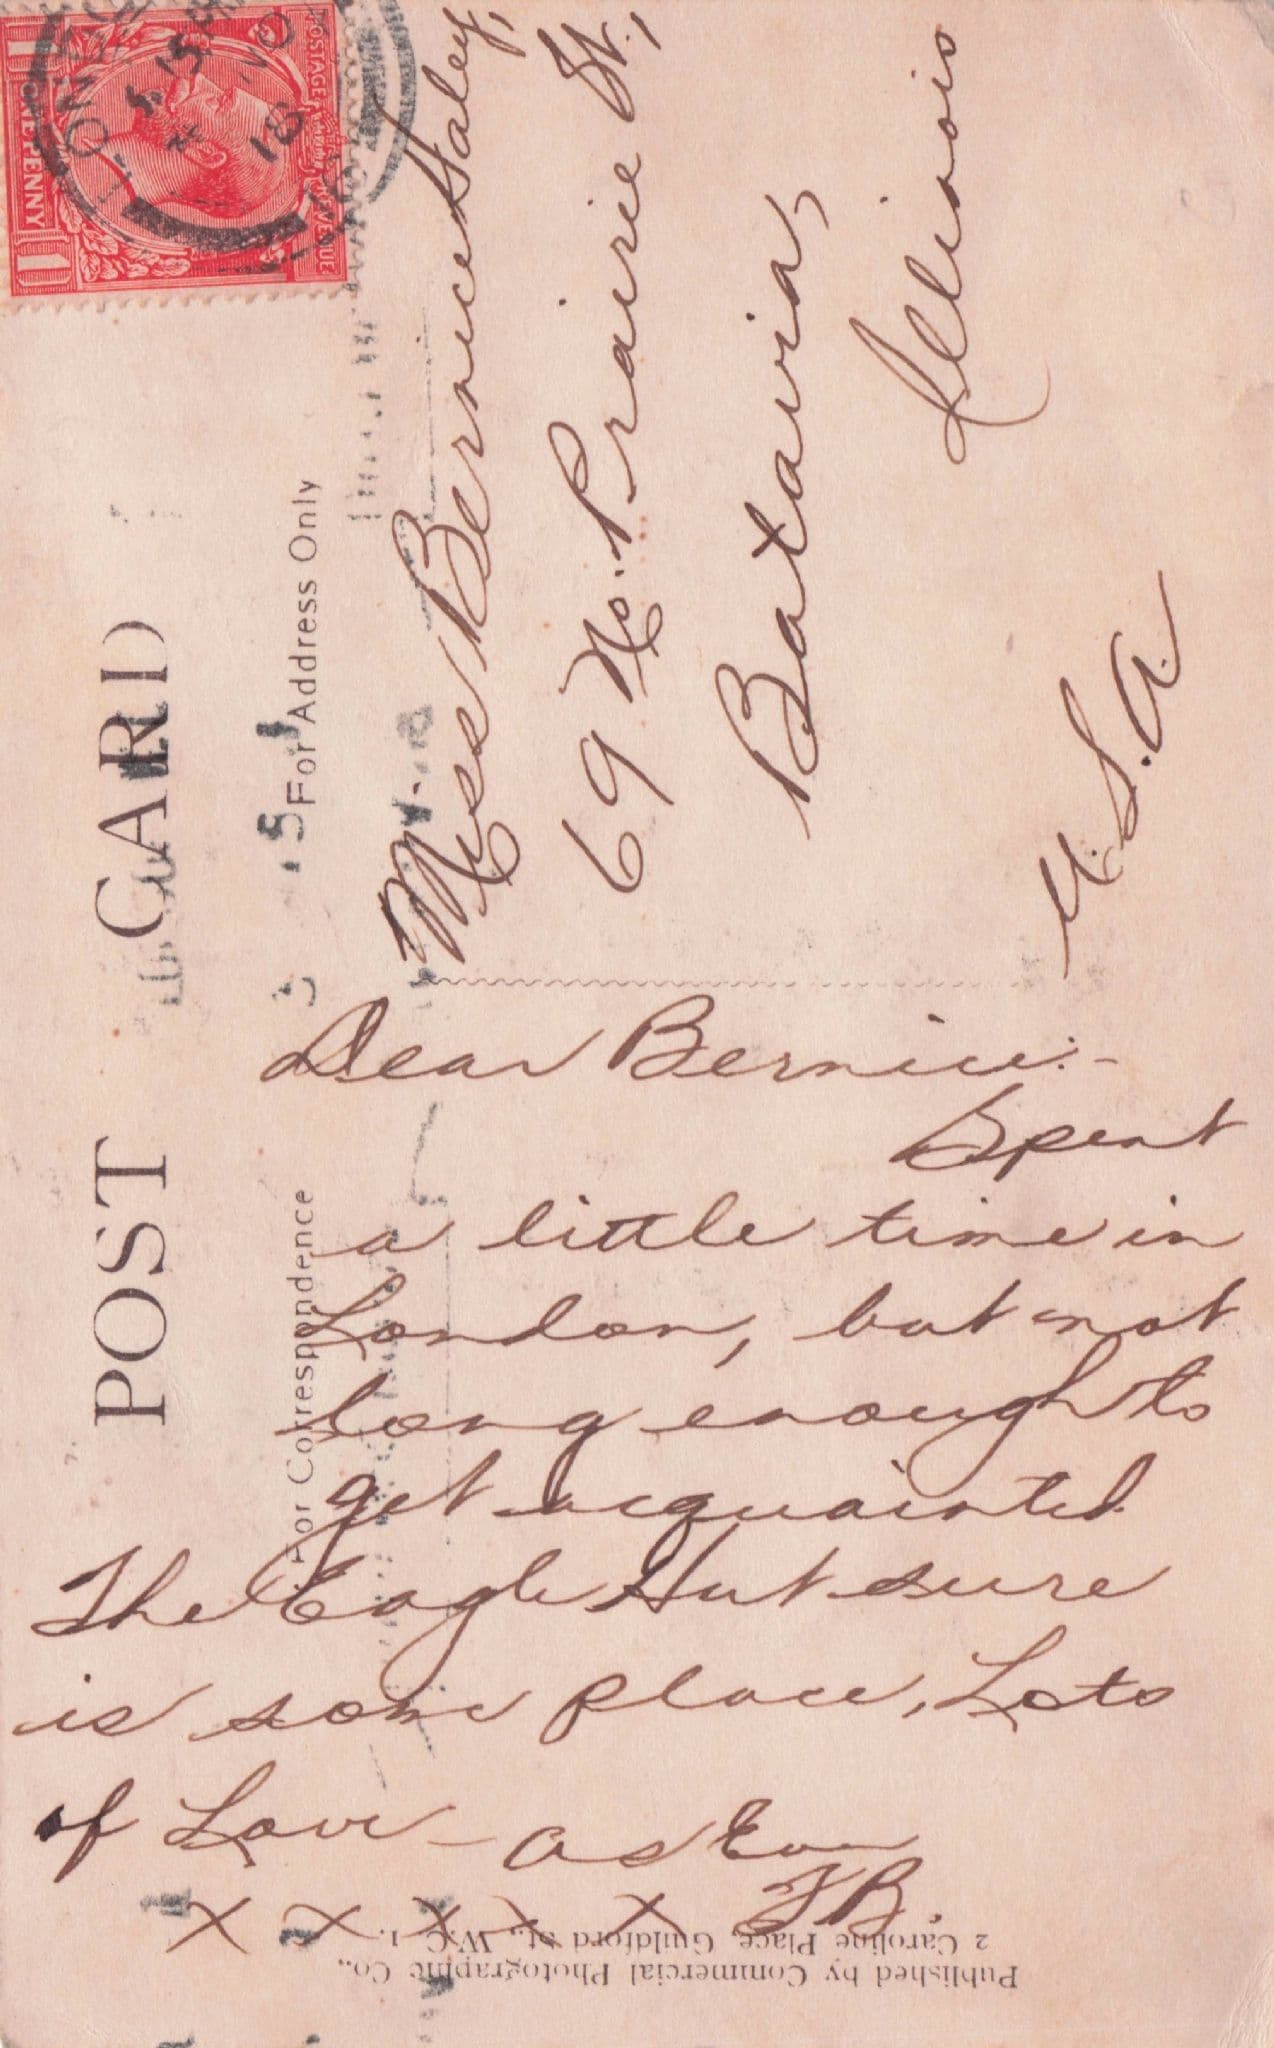 POST CARD
For Correspondence
For Address Only
POSTAGE
REVENUE
ONE PENNY
1
1
LONDON
15
NO
18
Miss Bernice Haley,
69 No. Prairie St.,
Batavia,
Illinois
U.S.A.
Dear Bernice:-
Spent
a little time in
London, but not
long enough to
get acquainted.
The Eagle Hut sure
is some place, Lots
of Love - as Ever
X X X X X F.B.
Published by Commercial Photographic Co.,
2 Caroline Place, Guildford St., W.C. 1.